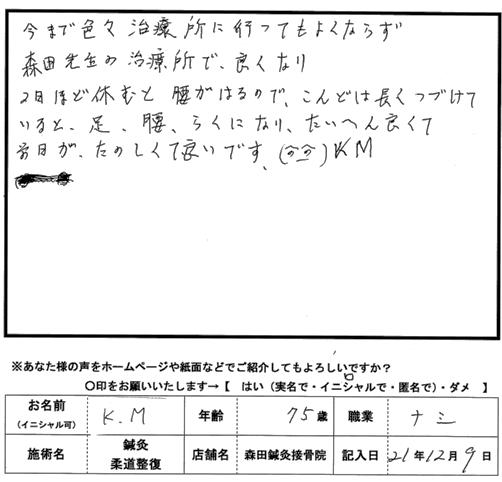 今まで色々治療所に行ってもよくならず
森田先生の治療所で、良くなり
2日ほど休むと腰がはるので、こんどは長くつづけて
いると、足、腰、らくになり、たいへん良くて
毎日が、たのしくて良いです。(^^) KM
※あなた様の声をホームページや紙面などでご紹介してもよろしいですか？
〇印をお願いいたします→【　はい（実名で・イニシャルで・匿名で）・ダメ　】
お名前 K.M 年齢 75歳 職業 ナシ
(イニシャル可)
施術名 鍼灸 柔道整復 店舗名 森田鍼灸接骨院 記入日 21年12月9日